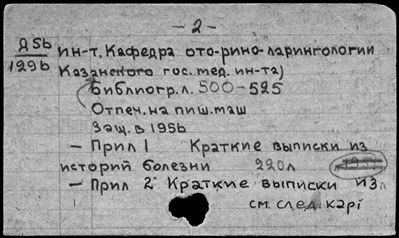 – 2 –
Д5b
129b
ин-т. Кафедра ото-рино-ларингологии
Казанского гос. мед. ин-та)
Библиогр. л. 500-525
Отпеч. на пиш. маш
Защ. в 195b
– Прил 1 Краткие выписки из
историй болезни 220л
– Прил 2 Краткие выписки из
см. след. карт